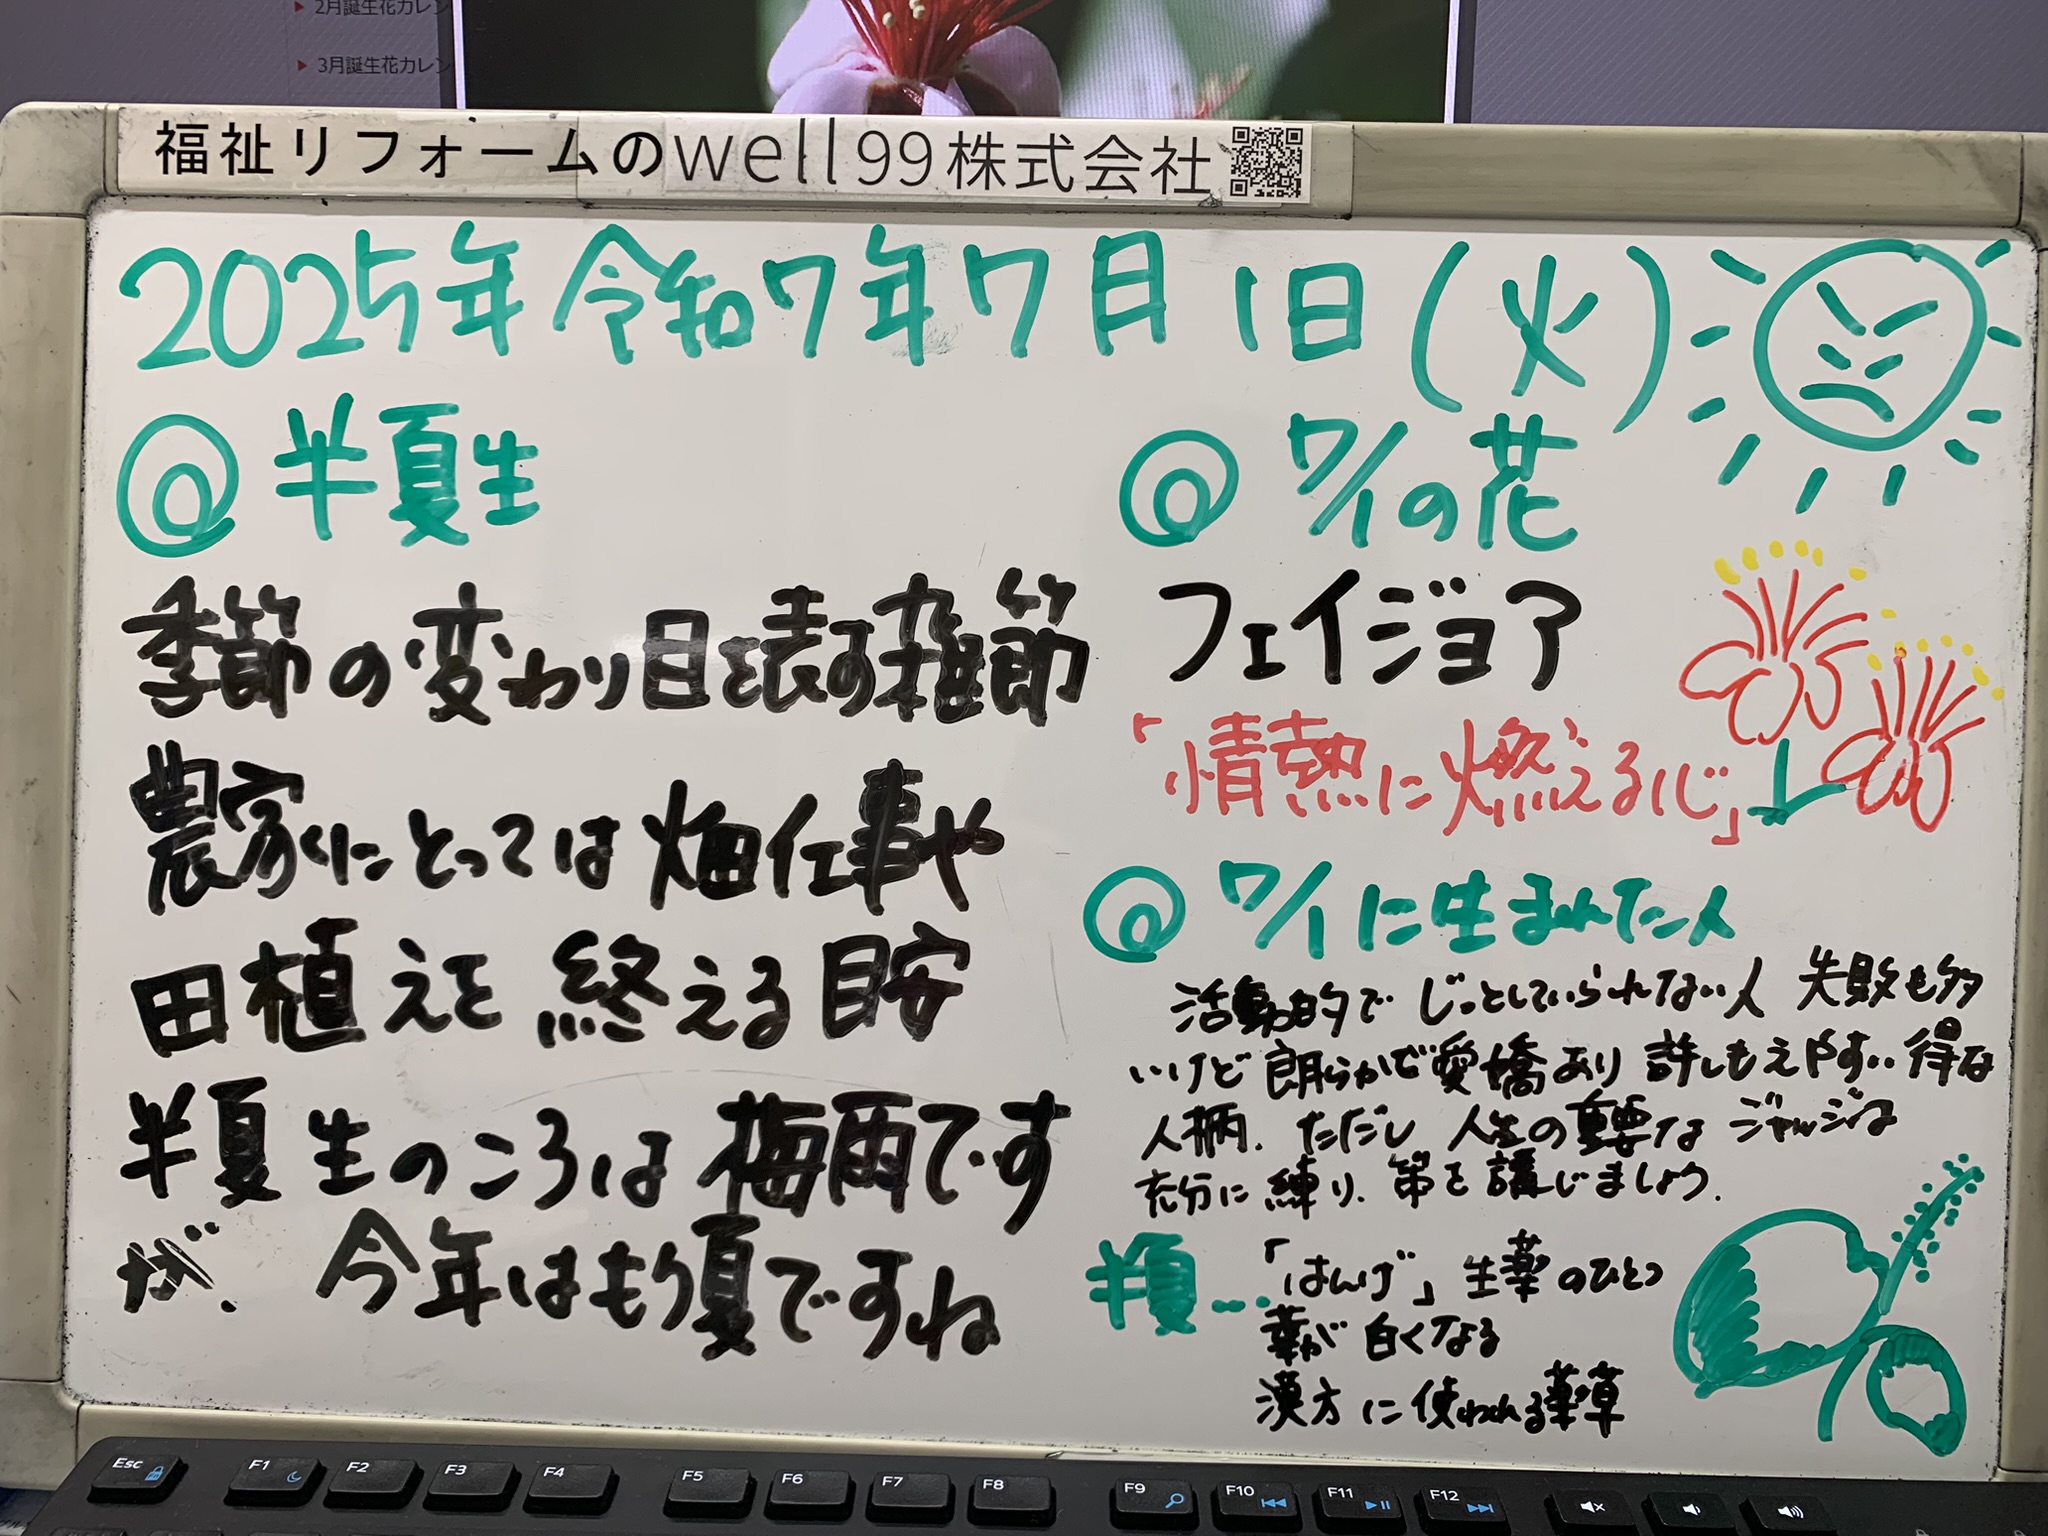 2月誕生花カレン
3月誕生花カレン
福祉リフォームのwell99株式会社
2025年 令和7年7月1日(火)
◎半夏生
季節の変わり目を表す雑節
農家にとっては畑仕事や
田植えを終える目安
半夏生のころは梅雨です
が、今年はもう夏ですね
◎ 7/1の花
フェイジョア
「情熱に燃える心」
◎ 7/1に生まれた人
活動的でじっとしていられない人 失敗も多
いけど朗らかで愛嬌あり 許してもらえやすい 得な
人柄、ただし 人生の重要な ジャッジは
充分に練り、策を講じましょう。
半夏…「はんげ」生薬のひとつ
葉が白くなる
漢方に使われる薬草
Esc F1 F2 F3 F4 F5 F6 F7 F8 F9 F10 F11 F12